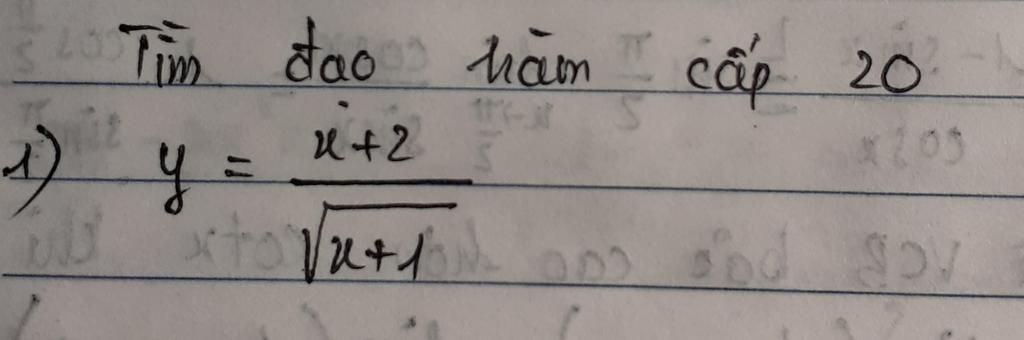 Tìm đạo hàm cấp 20
1) y = x+2 / √x+1